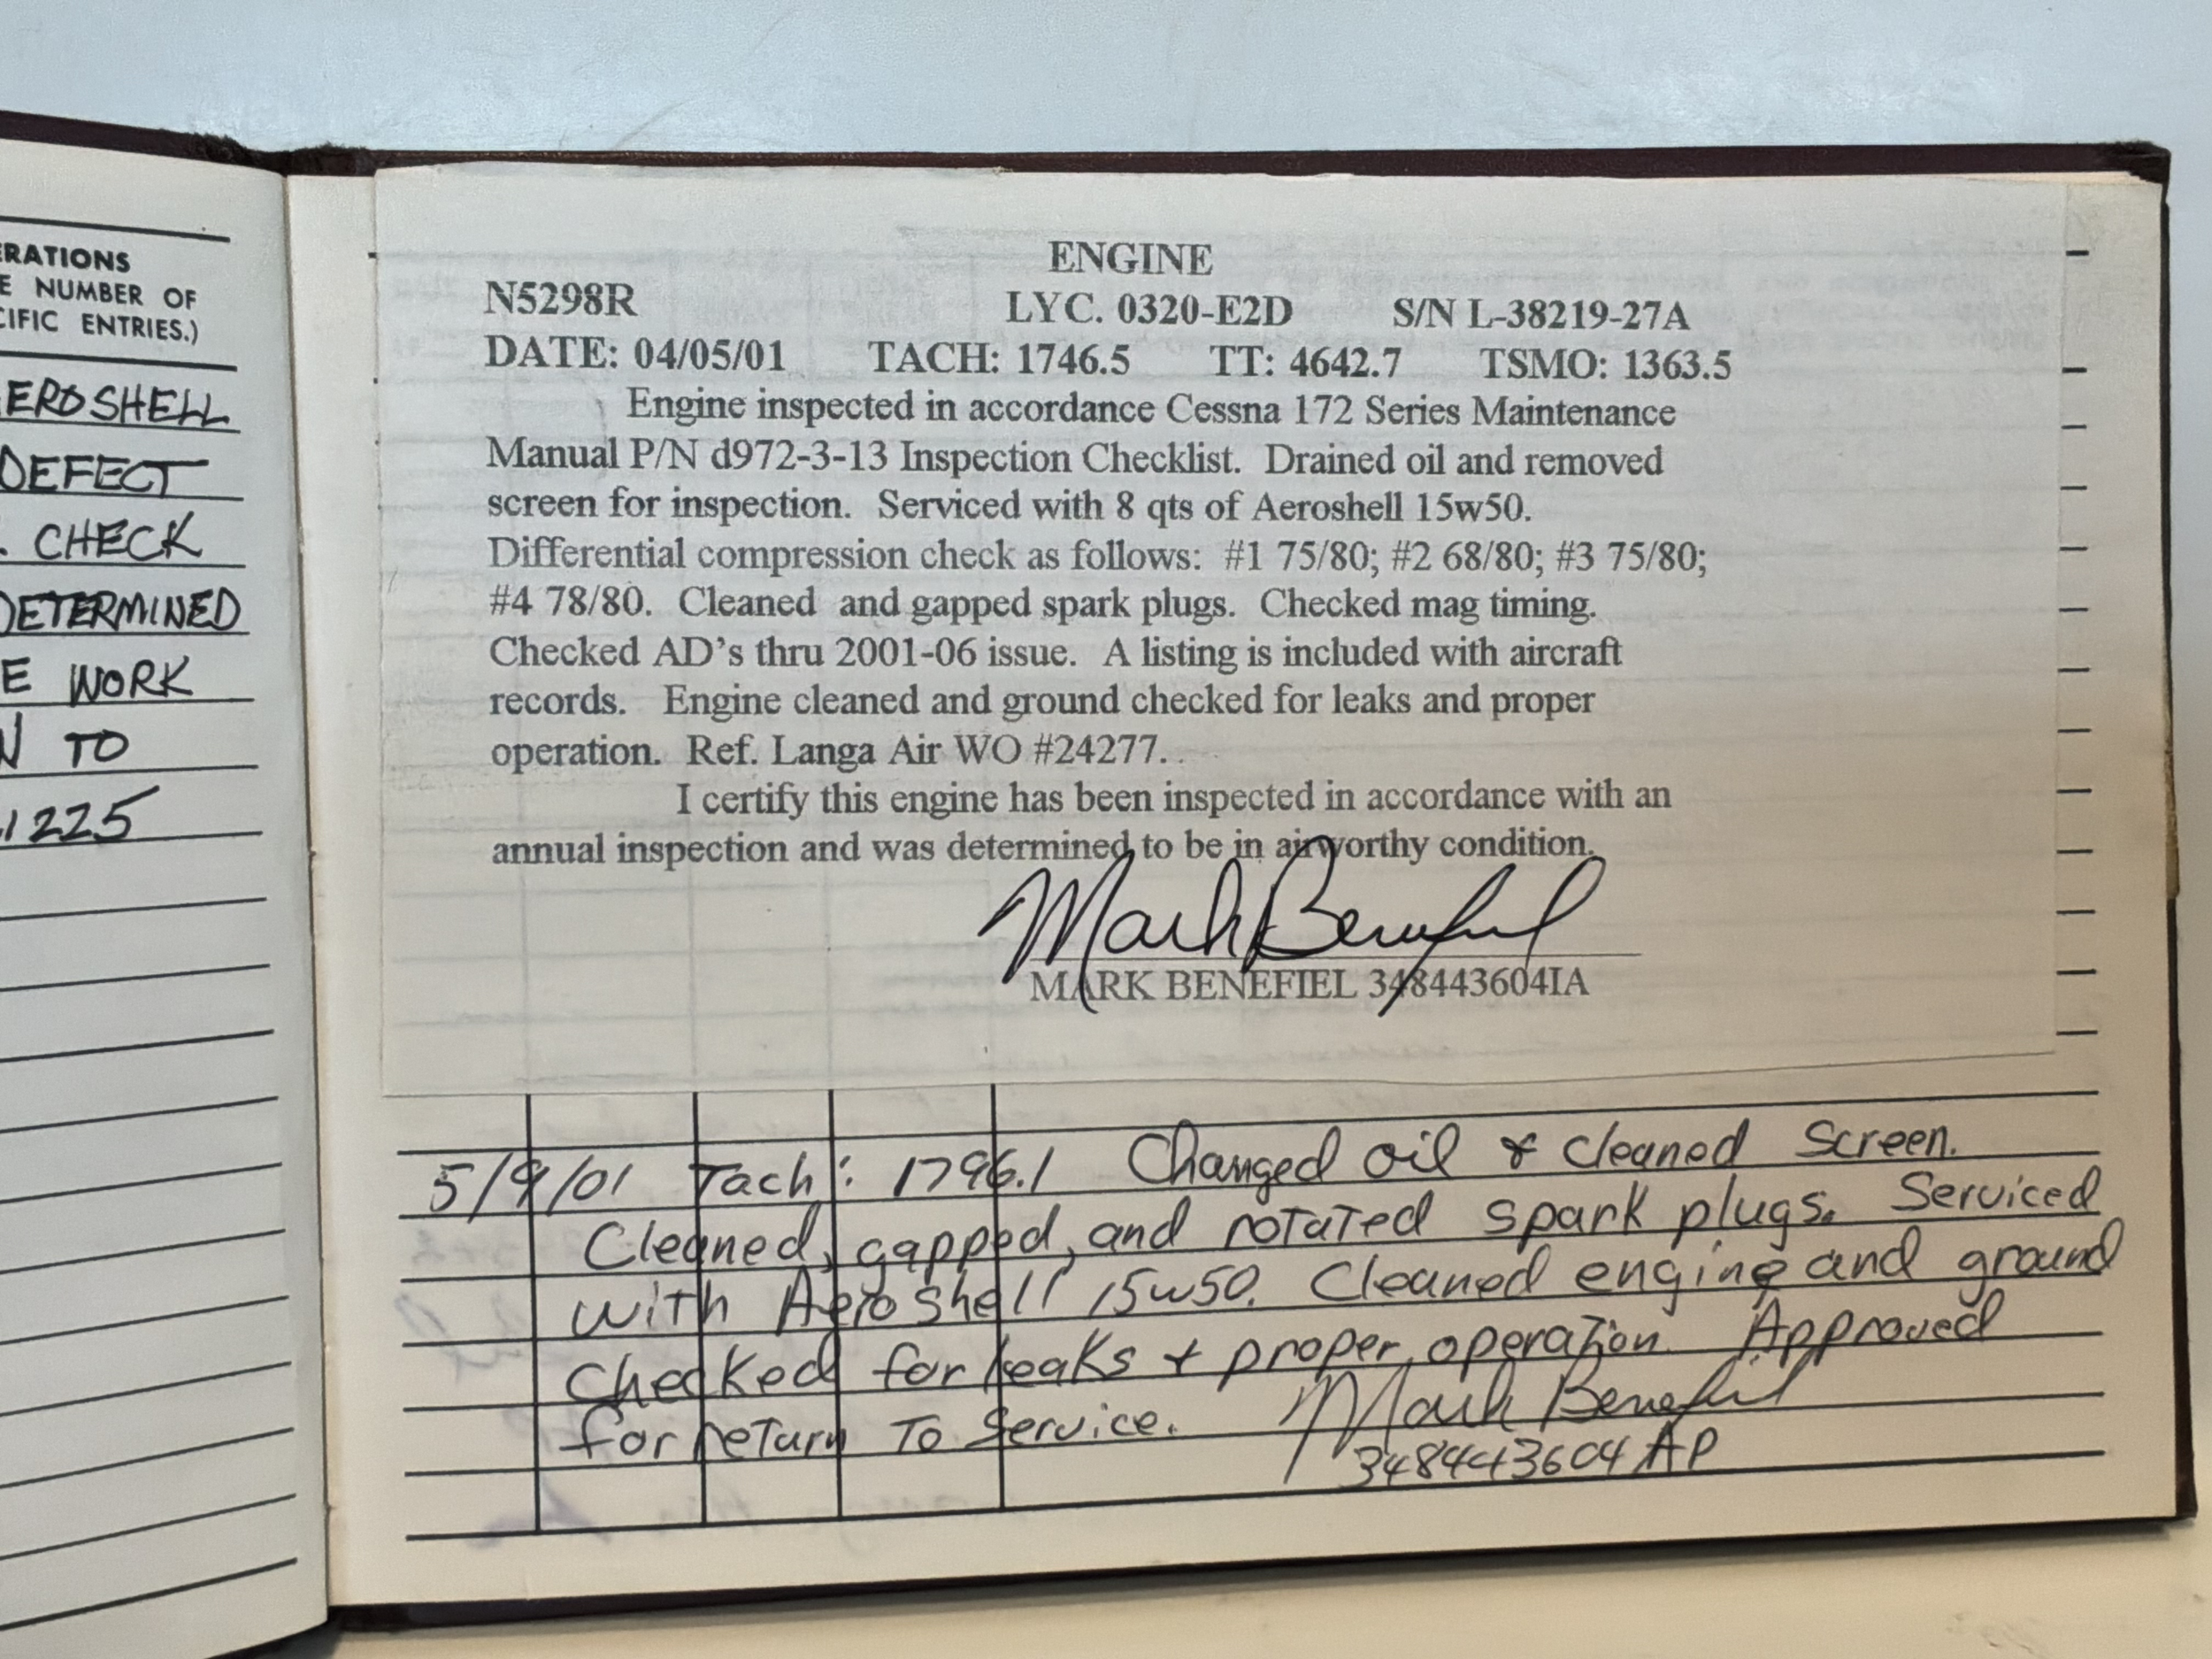 ERATIONS
E NUMBER OF
CIFIC ENTRIES.)
EROSHELL
DEFECT
. CHECK
DETERMINED
E WORK
N TO
1225
ENGINE
N5298R LYC. 0320-E2D S/N L-38219-27A
DATE: 04/05/01 TACH: 1746.5 TT: 4642.7 TSMO: 1363.5
Engine inspected in accordance Cessna 172 Series Maintenance
Manual P/N d972-3-13 Inspection Checklist. Drained oil and removed
screen for inspection. Serviced with 8 qts of Aeroshell 15w50.
Differential compression check as follows: #1 75/80; #2 68/80; #3 75/80;
#4 78/80. Cleaned and gapped spark plugs. Checked mag timing.
Checked AD's thru 2001-06 issue. A listing is included with aircraft
records. Engine cleaned and ground checked for leaks and proper
operation. Ref. Langa Air WO #24277.
I certify this engine has been inspected in accordance with an
annual inspection and was determined to be in airworthy condition.
Mark Benefiel
MARK BENEFIEL 348443604IA
5/9/01 Tach: 1796.1 Changed oil & cleaned screen.
Cleaned, gapped, and rotated spark plugs. Serviced
with Aeroshell 15w50. Cleaned engine and ground
checked for leaks + proper operation. Approved
for return to service. Mark Benefiel
348443604 AP